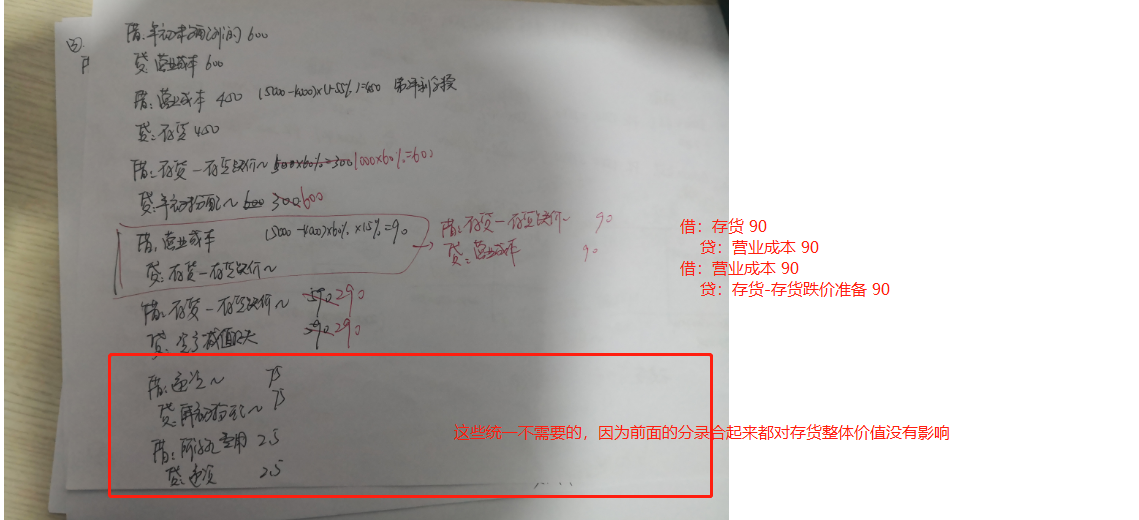 ③.
借:年初未分配利润 600
贷:营业成本 600
借:营业成本 450 (5000-4000)×(1-55%)=450
贷:存货 450
借:存货-存货跌价~ 500×60%=300 1000×60%=600
贷:年初未分配~ 600 300 600
借:营业成本 (5000-4000)×60%×15%=90
贷:存货-存货跌价~
借:存货-存货跌价~ 90
贷:营业成本 90
借:存货-存货跌价~ 290
贷:资产减值损失 290
借:递延~ 75
贷:年初未分配~ 75
借:所得税费用 2.5
贷:递延 2.5
借:存货 90
贷:营业成本 90
借:营业成本 90
贷:存货-存货跌价准备 90
这些统一不需要的,因为前面的分录合起来都对存货整体价值没有影响